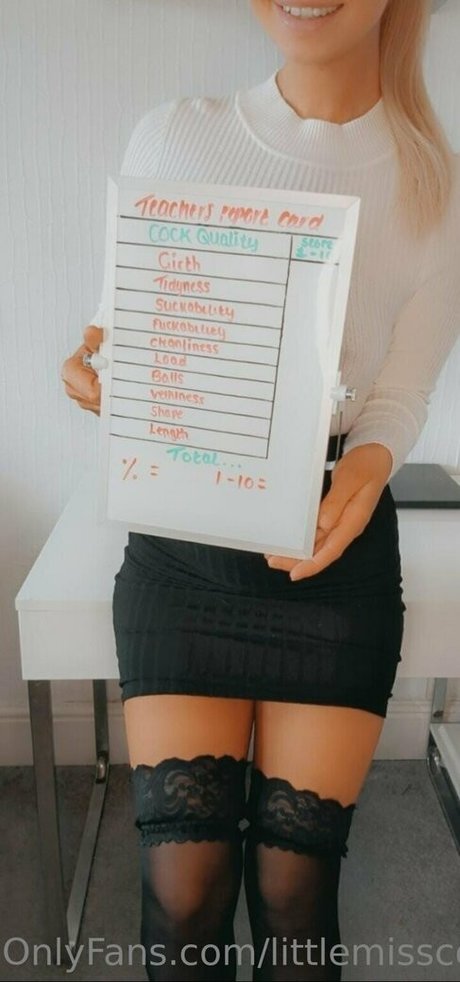 Teachers report card
COCK Quality
Score
1-10
Girth
Tidyness
Suckability
Fuckability
cleanliness
Load
Balls
veininess
Shape
Length
Total...
% =
1-10=
OnlyFans.com/littlemissc